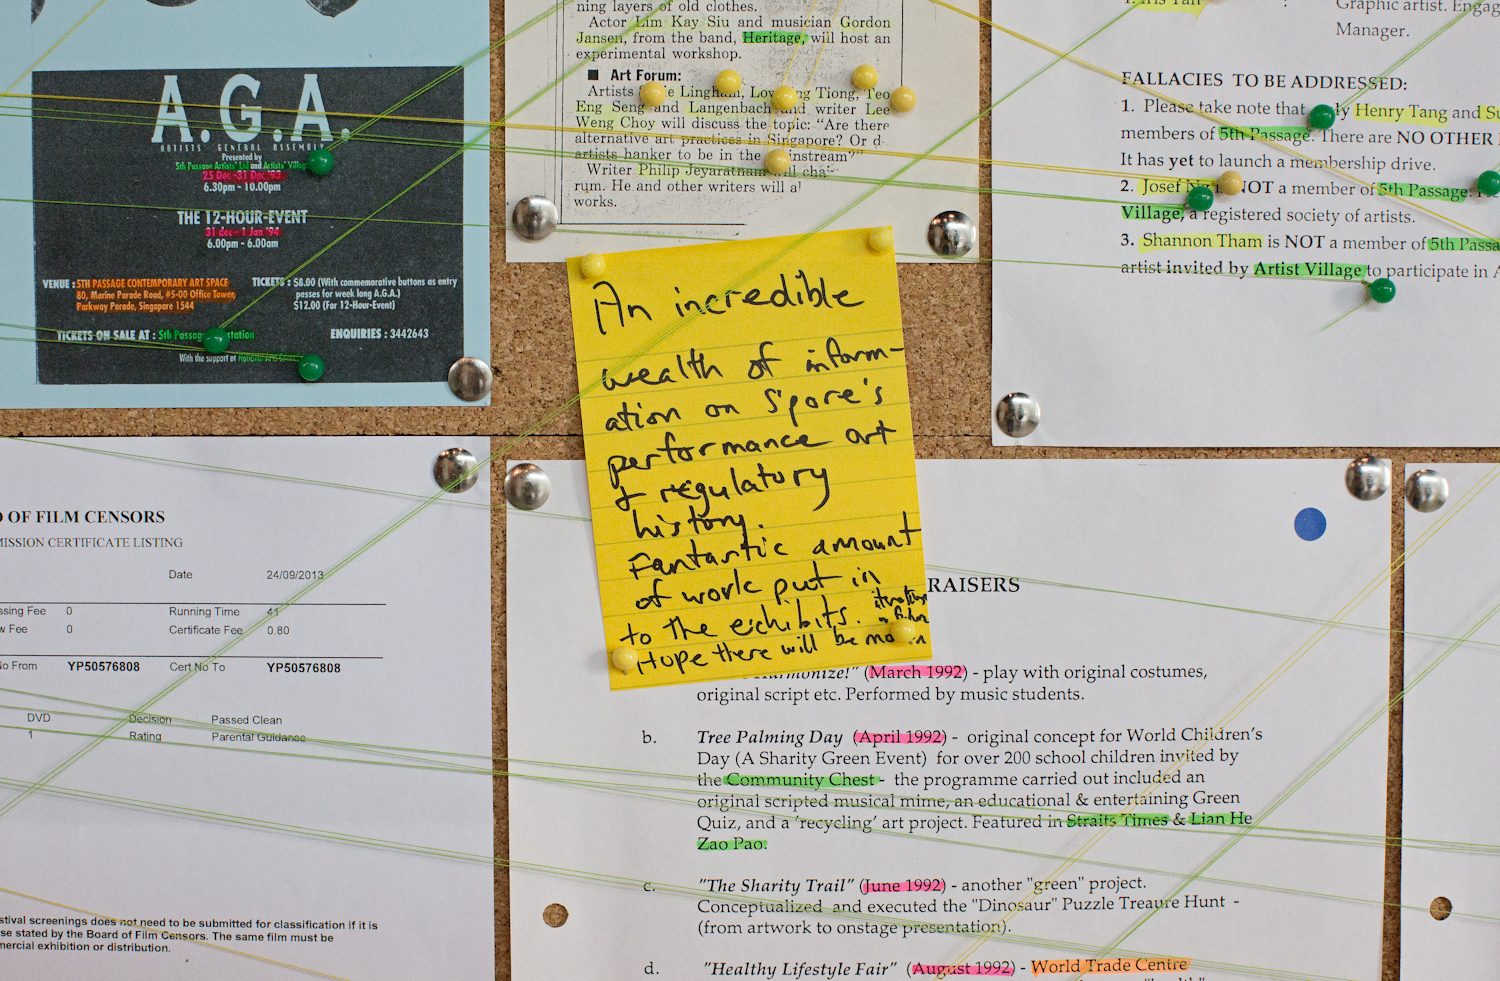 A.G.A.
ARTISTS GENERAL ASSEMBLY
Presented by
5th Passage Artists' Ltd and Artists' Village
25 Dec -31 Dec '93
6.30pm - 10.00pm
THE 12-HOUR-EVENT
31 dec- 1 Jan '94
6.00pm - 6.00am
VENUE : 5TH PASSAGE CONTEMPORARY ART SPACE
80, Marine Parade Road, #5-00 Office Tower,
Parkway Parade, Singapore 1544
TICKETS : $8.00 (With commemorative buttons as entry
passes for week long A.G.A.)
$12.00 (For 12-Hour-Event)
TICKETS ON SALE AT : 5th Passage
ENQUIRIES : 3442643
With the support of
ning layers of old clothes.
Actor Lim Kay Siu and musician Gordon
Jansen, from the band, Heritage, will host an
experimental workshop.
■ Art Forum:
Artists Lingham, Tiong, Teo
Eng Seng and Langenbach and writer Lee
Weng Choy will discuss the topic: "Are there
alternative art practices in Singapore? Or d
artists hanker to be in the instream?"
Writer Philip Jeyaratnam will chai
rum. He and other writers will a
works.
Graphic artist. Engag
Manager.
FALLACIES TO BE ADDRESSED:
1. Please take note that ly Henry Tang and Su
members of 5th Passage. There are NO OTHER
It has yet to launch a membership drive.
2. Josef NOT a member of 5th Passage.
Village, a registered society of artists.
3. Shannon Tham is NOT a member of 5th Passa
artist invited by Artist Village to participate in A
An incredible
wealth of inform-
ation on S'pore's
performance art
& regulatory
history.
Fantastic amount
of work put in
to the exhibits.
Hope there will be
D OF FILM CENSORS
MISSION CERTIFICATE LISTING
Date 24/09/2013
ssing Fee 0 Running Time 41
w Fee 0 Certificate Fee 0.80
No From YP50576808 Cert No To YP50576808
DVD Decision Passed Clean
1 Rating Parental Guidance
stival screenings does not need to be submitted for classification if it is
se stated by the Board of Film Censors. The same film must be
mercial exhibition or distribution.
RAISERS
armonize!" (March 1992) - play with original costumes,
original script etc. Performed by music students.
b. Tree Palming Day (April 1992) - original concept for World Children's
Day (A Sharity Green Event) for over 200 school children invited by
the Community Chest - the programme carried out included an
original scripted musical mime, an educational & entertaining Green
Quiz, and a 'recycling' art project. Featured in Straits Times & Lian He
Zao Pao.
c. "The Sharity Trail" (June 1992) - another "green" project.
Conceptualized and executed the "Dinosaur" Puzzle Treaure Hunt -
(from artwork to onstage presentation).
d. "Healthy Lifestyle Fair" (August 1992) - World Trade Centre